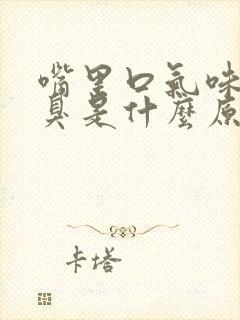 嘴里口氣味
臭是什麼原
卡塔